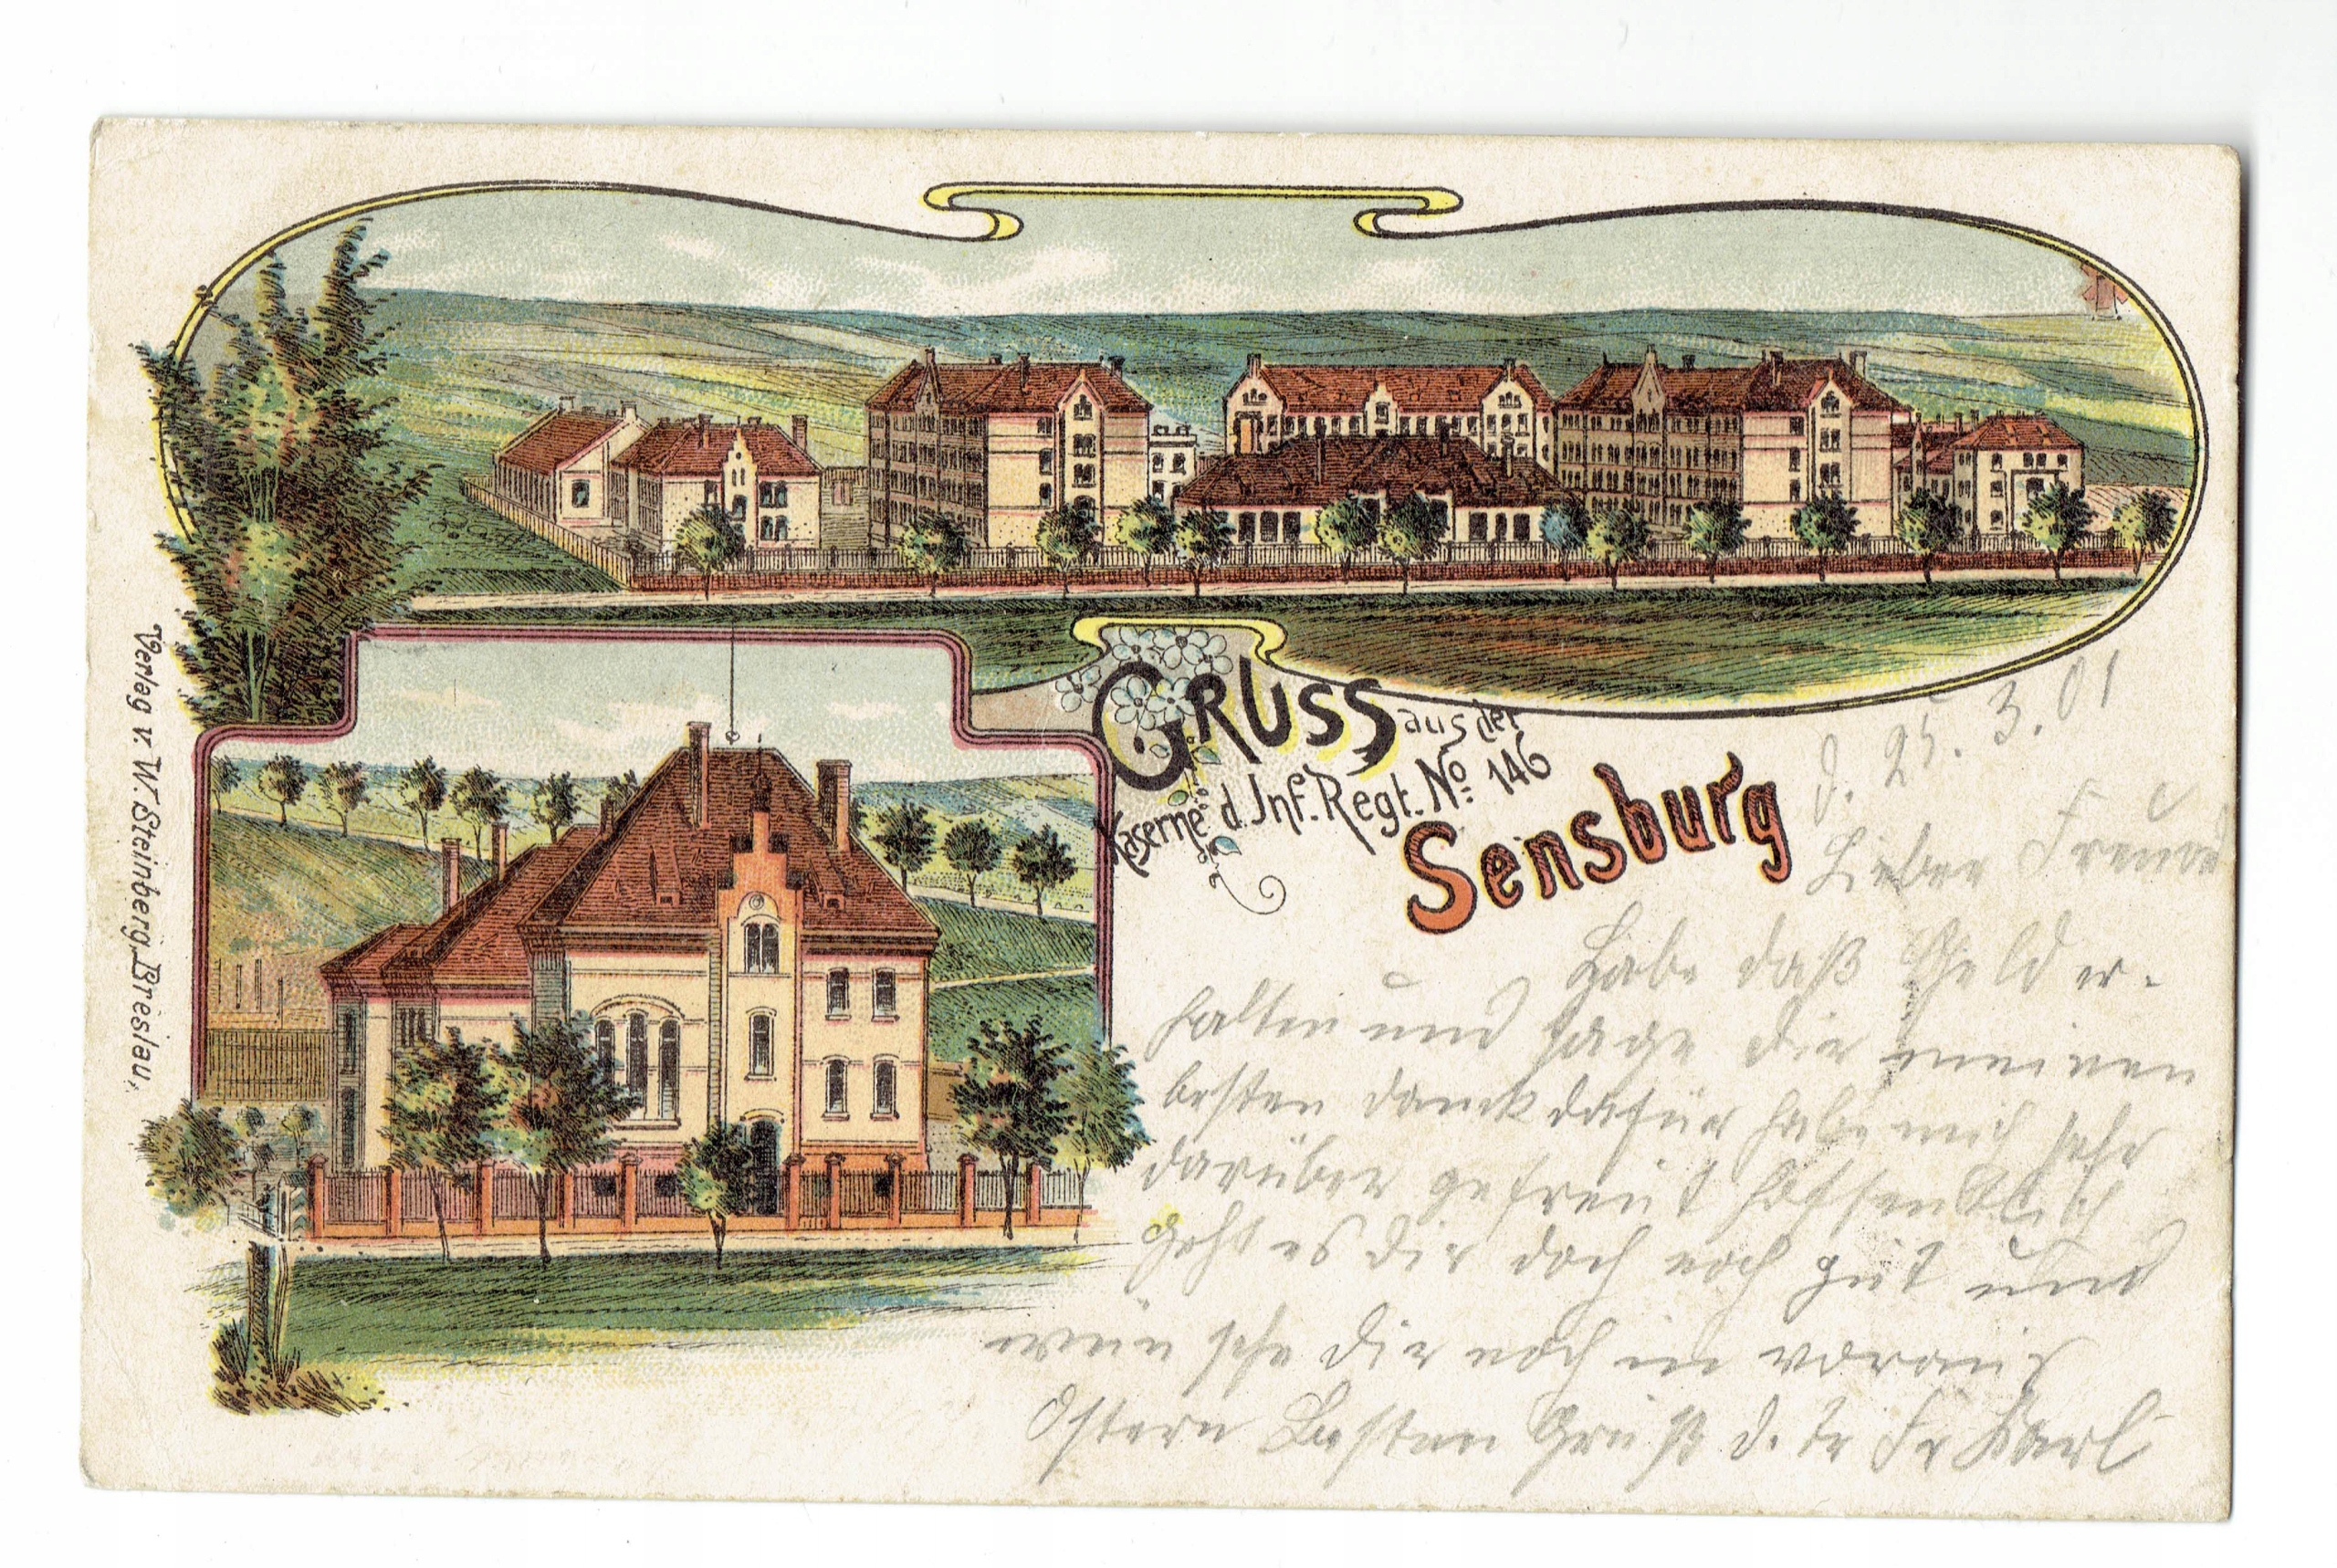 Gruss aus der
Kaserne d. Inf. Regt. No. 146
Sensburg
Verlag v. W. Steinberg, Breslau.
d. 25. 3. 01
Lieber Freund
Habe daß Geld er-
halten und sage dir meinen
besten Danck dafür habe mich sehr
darüber gefreut hoffentlich
geht es dir doch noch gut und
wünsche dir noch in voraus
Ostern Besten Gruß d. tr Fr Karl